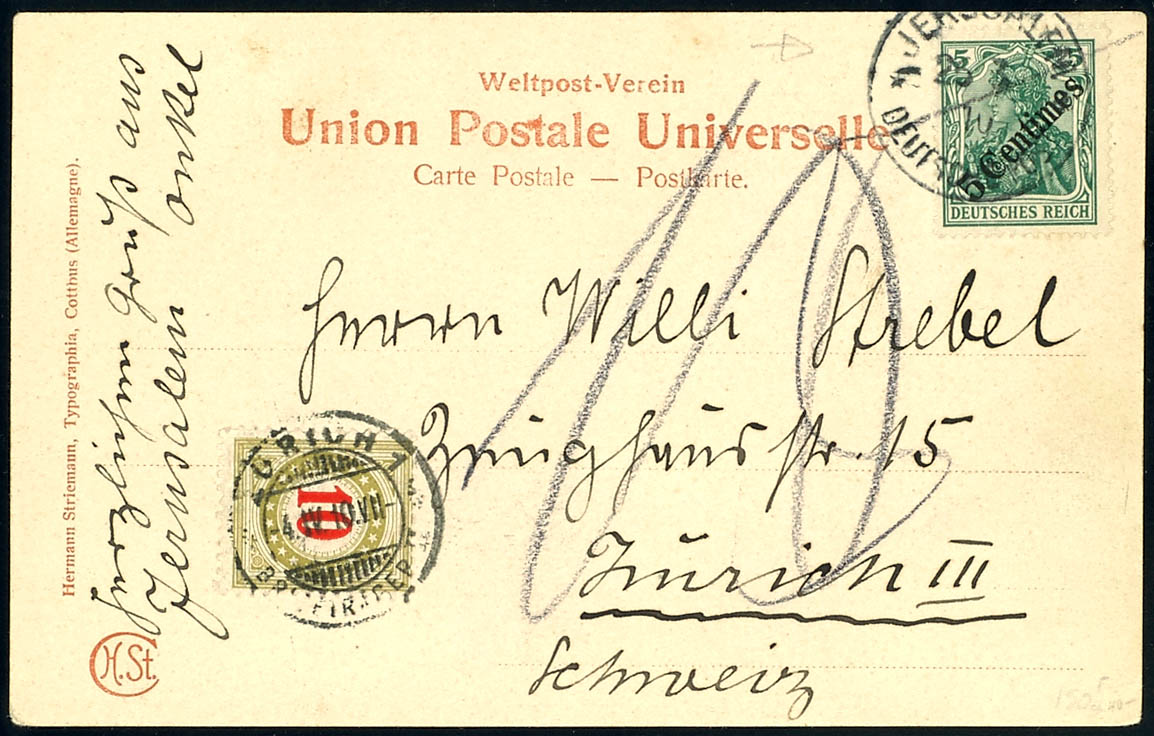 Weltpost-Verein
Union Postale Universelle
Carte Postale — Postkarte.
JERUSALEM
5 5
5 Centimes
DEUTSCHES REICH
Herrn Willi Strebel
Zeughausstr. 15
Zürich III
Schweiz
10
ZÜRICH 1
10
4.IV.10.VII-
BRIEFTRÄGER
Herzlichen Gruß aus
Jerusalem Onkel
Hermann Striemann, Typographia, Cottbus (Allemagne).
H.St.